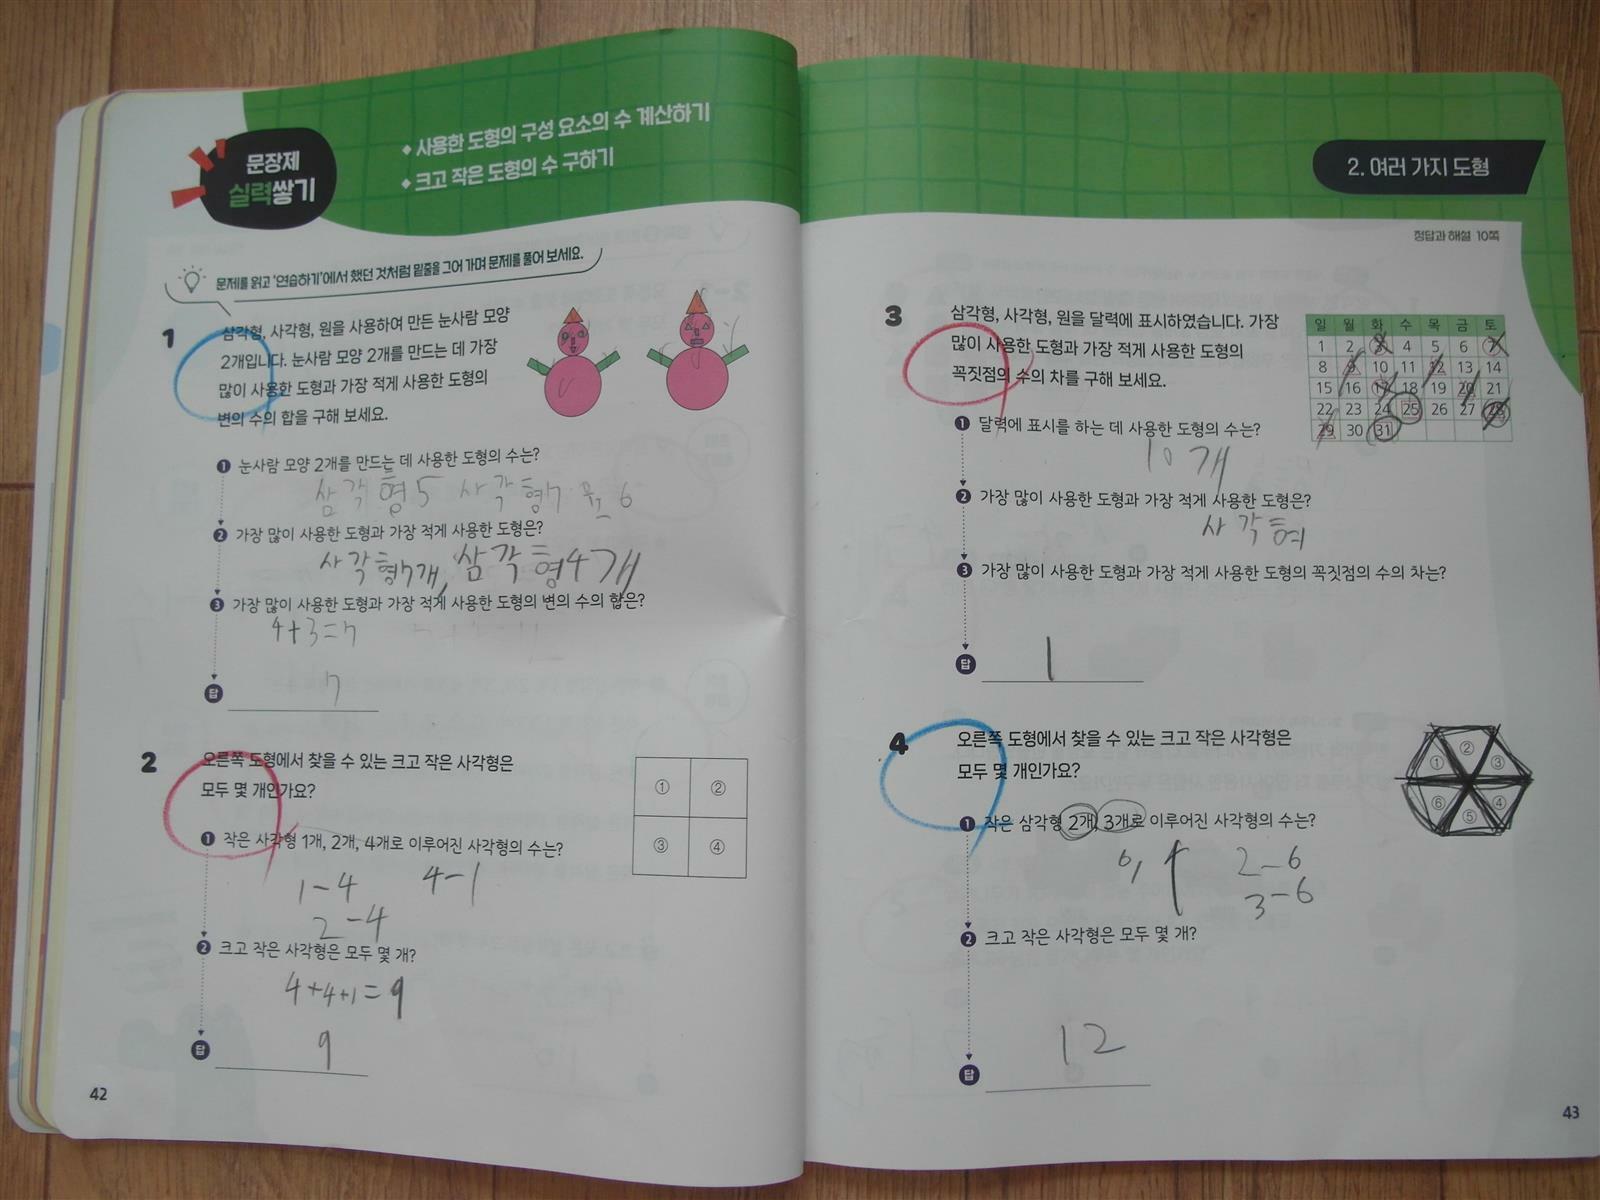 문장제
실력쌓기
◆ 사용한 도형의 구성 요소의 수 계산하기
◆ 크고 작은 도형의 수 구하기
문제를 읽고 '연습하기'에서 했던 것처럼 밑줄을 그어 가며 문제를 풀어 보세요.
1
삼각형, 사각형, 원을 사용하여 만든 눈사람 모양
2개입니다. 눈사람 모양 2개를 만드는 데 가장
많이 사용한 도형과 가장 적게 사용한 도형의
변의 수의 합을 구해 보세요.
❶ 눈사람 모양 2개를 만드는 데 사용한 도형의 수는?
삼각형5 사각형7 6
❷ 가장 많이 사용한 도형과 가장 적게 사용한 도형은?
사각형7개, 삼각형4개
❸ 가장 많이 사용한 도형과 가장 적게 사용한 도형의 변의 수의 합은?
4+3=7
답
7
2
오른쪽 도형에서 찾을 수 있는 크고 작은 사각형은
모두 몇 개인가요?
① ②
③ ④
❶ 작은 사각형 1개, 2개, 4개로 이루어진 사각형의 수는?
1-4 4-1
2-4
❷ 크고 작은 사각형은 모두 몇 개?
4+4+1=9
답
9
42
2. 여러 가지 도형
정답과 해설 10쪽
3
삼각형, 사각형, 원을 달력에 표시하였습니다. 가장
많이 사용한 도형과 가장 적게 사용한 도형의
꼭짓점의 수의 차를 구해 보세요.
일 월 화 수 목 금 토
1 2 3 4 5 6 7
8 9 10 11 12 13 14
15 16 17 18 19 20 21
22 23 24 25 26 27 28
29 30 31
❶ 달력에 표시를 하는 데 사용한 도형의 수는?
10개
❷ 가장 많이 사용한 도형과 가장 적게 사용한 도형은?
사각혀
❸ 가장 많이 사용한 도형과 가장 적게 사용한 도형의 꼭짓점의 수의 차는?
답
1
4
오른쪽 도형에서 찾을 수 있는 크고 작은 사각형은
모두 몇 개인가요?
② ① ③ ⑥ ④ ⑤
❶ 작은 삼각형 2개, 3개로 이루어진 사각형의 수는?
2-6
3-6
❷ 크고 작은 사각형은 모두 몇 개?
답
12
43